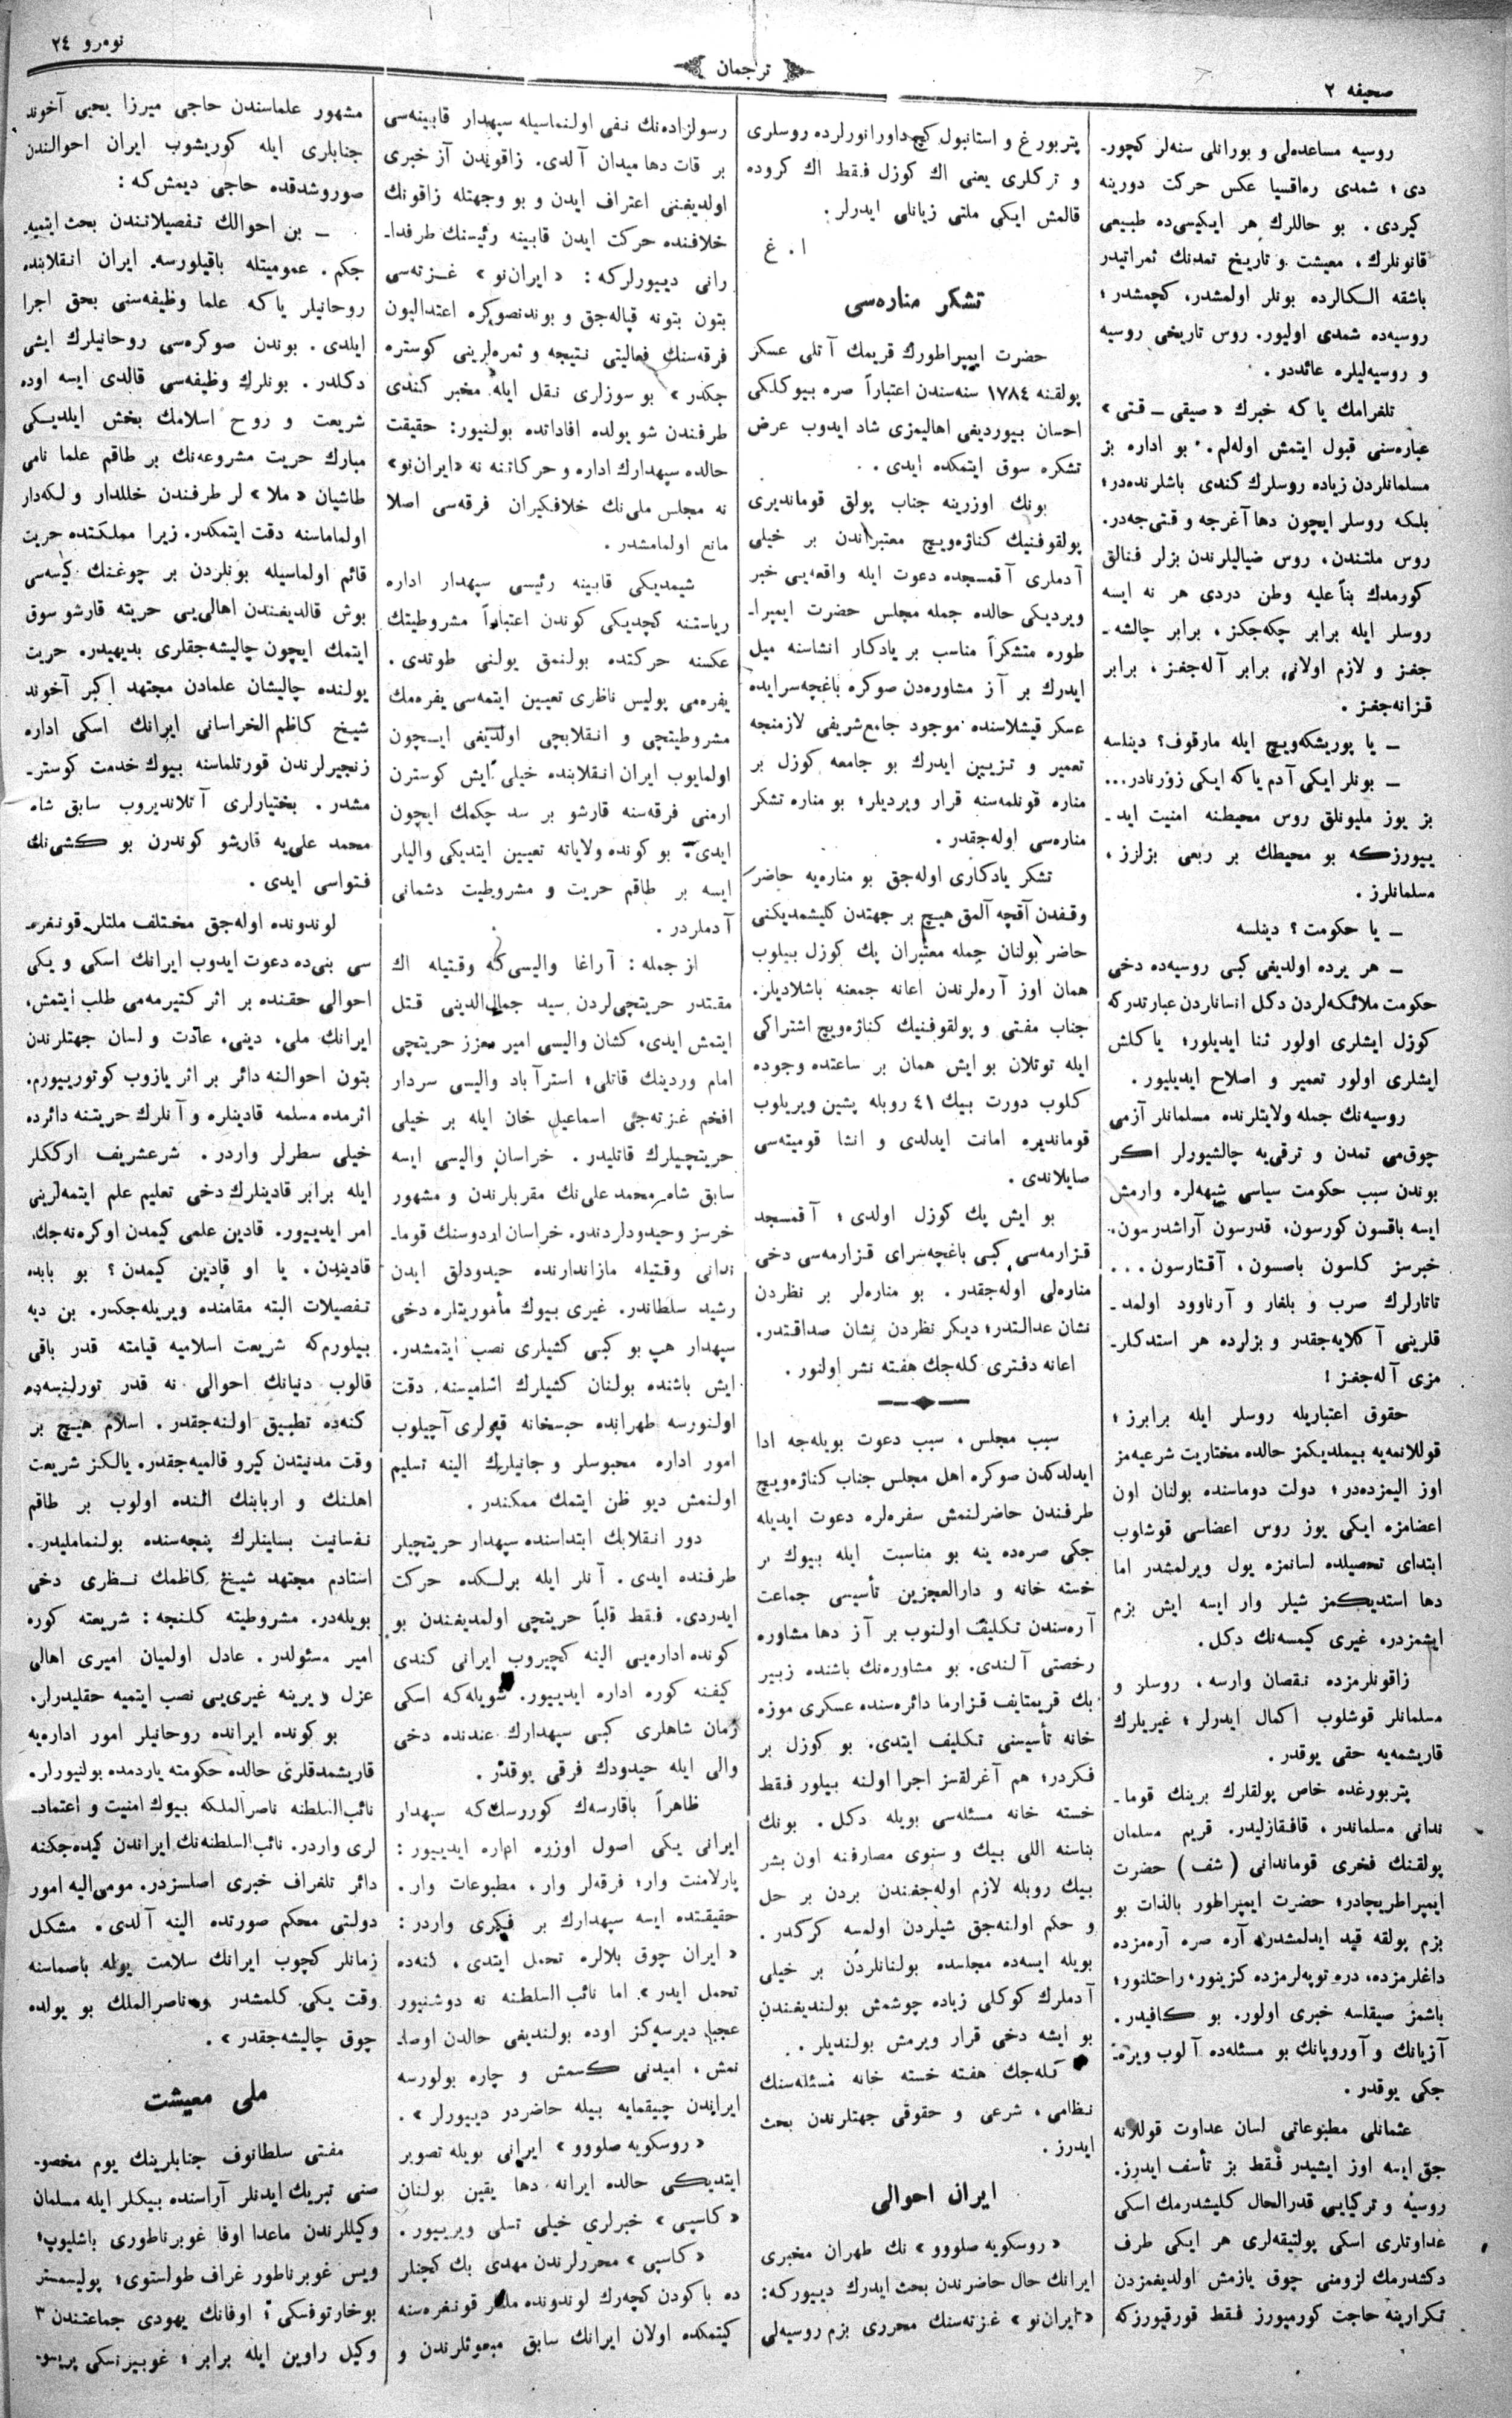 صحیفه ٢
ترجمان
نومرو ٢٤
روسیه مساعده‌لی و بورانلی سنه‌لر کچور-
دی؛ شمدی ره‌اقسیا عکس حرکت دورینه
کیردی. بو حاللرك هر ایکیسی‌ده طبیعی
قانونلرك، معیشت و تاریخ تمدنك ثمراتیدر
باشقه الکالرده بونلر اولمشدر، کچمشدر؛
روسیه‌ده شمدی اولیور. روس تاریخی روسیه
و روسیه‌لیلره عائددر.
تلغرامك یا که خبرك «صیقی ــ قتی»
عباره‌سنی قبول ایتمش اوله‌لم. بو اداره بز
مسلمانلردن زیاده روسلرك کندی باشلرنده‌در؛
بلکه روسلر ایچون دها آغرجه و قتی‌جه‌در.
روس ملتندن، روس ضیالیلرندن بزلر فنالق
کورمدك بناً علیه وطن دردی هر نه ایسه
روسلر ایله برابر چکه‌جکز، برابر چالشه-
جغز و لازم اولانی برابر آله‌جغز، برابر
قزانه‌جغز.
ــ یا پوریشکه‌ویچ ایله مارقوف؟ دینلسه
ــ بونلر ایکی آدم یا که ایکی زۇرنادر...
بز یوز ملیونلق روس محیطنه امنیت اید-
ییورزکه بو محیطك بر ربعی بزلرز،
مسلمانلرز.
ــ یا حکومت؟ دینلسه
ــ هر یرده اولدیغی کبی روسیه‌ده دخی
حکومت ملائکه‌لردن دکل انسانلردن عبارتدرکه
کوزل ایشلری اولور ثنا ایدیلور؛ یاکلش
ایشلری اولور تعمیر و اصلاح ایدیلیور.
روسیه‌نك جمله ولایتلرنده مسلمانلر آزمی
چوق‌می تمدن و ترقی‌یه چالشیورلر اکر
بوندن سبب حکومت سیاسی شبهه‌لره وارمش
ایسه باقسون کورسون، قدرسون آراشدرسون،
خبرسز کلسون باصسون، آقتارسون...
تاتارلرك صرب و بلغار و آرناوود اولمد-
قلرینی آکلایه‌جقدر و بزلرده هر استدکلر-
مزی آله‌جغز!
حقوق اعتباریله روسلر ایله برابرز؛
قوللانمه‌یه بیملدیکمز حالده مختاریت شرعیه‌مز
اوز الیمزده‌در؛ دولت دوماسنده بولنان اون
اعضامزه ایکی یوز روس اعضاسی قوشلوب
ابتدای تحصیلده لسانمزه یول ویرلمشدر اما
دها استدیکمز شیلر وار ایسه ایش بزم
ایشمزدر، غیری کیمسه‌نك دکل.
زاقونلرمزده نقصان وارسه، روسلر و
مسلمانلر قوشلوب اکمال ایدرلر؛ غیریلرك
قاریشمه‌یه حقی یوقدر.
پتربورغده خاص پولقلرك برینك قوما-
ندانی مسلماندر، قافقازلیدر. قریم مسلمان
پولقنك فخری قوماندانی (شف) حضرت
ایمپراطریچادر؛ حضرت ایمپراطور بالذات بو
بزم پولقه قید ایدلمشدر، آره صره آره‌مزده
داغلرمزده، دره توپه‌لرمزده کزینور، راحتلنور؛
باشمز صیقلسه خبری اولور. بو کافیدر.
آزیانك و آوروپانك بو مسئله‌ده آلوب ویره-
جکی یوقدر.
عثمانلی مطبوعاتی لسان عداوت قوللانه
جق ایسه اوز ایشیدر فقط بز تأسف ایدرز.
روسیه و ترکیایی قدرالحال کلیشدرمك اسکی
عداوتلری اسکی پولتیقه‌لری هر ایکی طرف
دکشدرمك لزومنی چوق یازمش اولدیغمزدن
تکرارینه حاجت کورمیورز فقط قورقیورزکه
پتربورغ و استانبول کچ داورانورلرده روسلری
و ترکلری یعنی اك کوزل فقط اك کروده
قالمش ایکی ملتی زیانلی ایدرلر.
ا. غ
تشکر مناره‌سی
حضرت ایمپراطورك قریمك آتلی عسکر
پولقنه ١٧٨٤ سنه‌سندن اعتباراً صره بیوکلکی
احسان بیوردیغی اهالیمزی شاد ایدوب عرض
تشکره سوق ایتمکده ایدی.
بونك اوزرینه جناب پولق قوماندیری
پولقوفنیك کناژه‌ویچ معتبراندن بر خیلی
آدملری آقمسجده دعوت ایله واقعه‌یی خبر
ویردیکی حالده جمله مجلس حضرت ایمپرا-
طوره متشکراً مناسب بر یادکار انشاسنه میل
ایدرك بر آز مشاوره‌دن صوکره باغچه‌سرایده
عسکر قیشلاسنده موجود جامع‌شریفی لازمنجه
تعمیر و تزیین ایدرك بو جامعه کوزل بر
مناره قونلمه‌سنه قرار ویردیلر؛ بو مناره تشکر
مناره‌سی اوله‌جقدر.
تشکر یادکاری اوله‌جق بو مناره‌یه حاضر
وقفدن آقچه آلمق هیچ بر جهتدن کلیشمدیکنی
حاضر بولنان جمله معتبران پك کوزل بیلوب
همان اوز آره‌لرندن اعانه جمعنه باشلادیلر.
جناب مفتی و پولقوفنیك کناژه‌ویچ اشتراکی
ایله توتلان بو ایش همان بر ساعتده وجوده
کلوب دورت بیك ٤١ روبله پشین ویریلوب
قوماندیره امانت ایدلدی و انشا قومیته‌سی
صایلاندی.
بو ایش پك کوزل اولدی؛ آقمسجد
قزارمه‌سی کبی باغچه‌سرای قزارمه‌سی دخی
مناره‌لی اوله‌جقدر. بو مناره‌لر بر نظردن
نشان عدالتدر، دیکر نظردن نشان صداقتدر.
اعانه دفتری کله‌جك هفته نشر اولنور.
سبب مجلس، سبب دعوت بویله‌جه ادا
ایدلدکدن صوکره اهل مجلس جناب کناژه‌ویچ
طرفندن حاضرلنمش سفره‌لره دعوت ایدیله
جکی صره‌ده ینه بو مناسبت ایله بیوك بر
خسته خانه و دارالعجزین تأسیسی جماعت
آره‌سندن تکلیف اولنوب بر آز دها مشاوره
رخصتی آلندی. بو مشاوره‌نك باشنده زبیر
بك قریمتایف قزارما دائره‌سنده عسکری موزه
خانه تأسیسنی تکلیف ایتدی. بو کوزل بر
فکردر؛ هم آغرلقسز اجرا اولنه بیلور فقط
خسته خانه مسئله‌سی بویله دکل. بونك
بناسنه اللی بیك و سنوی مصارفنه اون بشر
بیك روبله لازم اوله‌جغندن بردن بر حل
و حکم اولنه‌جق شیلردن اولمسه کرکدر.
بویله ایسه‌ده مجلسده بولنانلردن بر خیلی
آدملرك کوکلی زیاده جوشمش بولندیغندن
بو ایشه دخی قرار ویرمش بولندیلر.
کله‌جك هفته خسته خانه مسئله‌سنك
نظامی، شرعی و حقوقی جهتلرندن بحث
ایدرز.
ایران احوالی
«روسکویه صلووو» نك طهران مخبری
ایرانك حال حاضرندن بحث ایدرك دییورکه:
«ایران‌نو» غزته‌سنك محرری بزم روسیه‌لی
رسولزاده‌نك نفی اولنماسیله سپهدار قابینه‌سی
بر قات دها میدان آلدی. زاقوندن آز خبری
اولدیغنی اعتراف ایدن و بو وجهتله زاقونك
خلافنده حرکت ایدن قابینه رئیسنك طرفدا-
رانی دییورلرکه: «ایران‌نو» غزته‌سی
بتون بتونه قپاله‌جق و بوندنصوکره اعتدالیون
فرقه‌سنك فعالیتی نتیجه و ثمره‌لرینی کوستره
جکدر» بو سوزلری نقل ایله مخبر کندی
طرفندن شو یولده افاداتده بولنیور: حقیقت
حالده سپهدارك اداره و حرکاتنه نه «ایران‌نو»
نه مجلس ملی‌نك خلافکیران فرقه‌سی اصلا
مانع اولمامشدر.
شیمدیکی قابینه رئیسی سپهدار اداره
ریاستنه کچدیکی کوندن اعتباراً مشروطیتك
عکسنه حرکتده بولنمق یولنی طوتدی.
یفره‌می پولیس ناظری تعیین ایتمه‌سی یفره‌مك
مشروطیتچی و انقلابچی اولدیغی ایچون
اولمایوب ایران انقلابنده خیلی ایش کوسترن
ارمنی فرقه‌سنه قارشو بر سد چکمك ایچون
ایدی. بو کونده ولایاته تعیین ایتدیکی والیلر
ایسه بر طاقم حریت و مشروطیت دشمانی
آدملردر.
از جمله: آراغا والیسی‌که وقتیله اك
مقتدر حریتچی‌لردن سید جمال‌الدینی قتل
ایتمش ایدی، کشان والیسی امیر معزز حریتچی
امام وردینك قاتلی؛ استرآباد والیسی سردار
افخم غزته‌جی اسماعیل خان ایله بر خیلی
حریتچیلرك قاتلیدر. خراسان والیسی ایسه
سابق شاه محمد علی‌نك مقربلرندن و مشهور
خرسز وحیدودلردندر. خراسان اردوسنك قوما-
ندانی وقتیله مازاندارنده حیدودلق ایدن
رشید سلطاندر. غیری بیوك مأموریتلره دخی
سپهدار هپ بو کبی کشیلری نصب ایتمشدر.
ایش باشنده بولنان کشیلرك اشلمیسنه دقت
اولنورسه طهرانده حبسخانه قپولری آچیلوب
امور اداره محبوسلر و جانیلرك الینه تسلیم
اولنمش دیو ظن ایتمك ممکندر.
دور انقلابك ابتداسنده سپهدار حریتچیلر
طرفنده ایدی. آنلر ایله برلکده حرکت
ایدردی. فقط قلباً حریتچی اولمدیغندن بو
کونده اداره‌یی الینه کچیروب ایرانی کندی
کیفنه کوره اداره ایدییور. شویله‌که اسکی
زمان شاهلری کبی سپهدارك عندنده دخی
والی ایله حیدودك فرقی یوقدر.
ظاهراً باقارسه‌ك کوررسك‌که سپهدار
ایرانی یکی اصول اوزره اداره ایدییور:
پارلامنت وار؛ فرقه‌لر وار، مطبوعات وار.
حقیقتده ایسه سپهدارك بر فکری واردر:
«ایران چوق بلالره تحمل ایتدی، کنه‌ده
تحمل ایدر» اما نائب السلطنه نه دوشنیور
عجبا دیرسه‌کز اوده بولندیغی حالدن اوصا-
نمش، امیدنی کسمش و چاره بولورسه
ایراندن چیقمایه بیله حاضردر دییورلر».
«روسکویه صلووو» ایرانی بویله تصویر
ایتدیکی حالده ایرانه دها یقین بولنان
«کاسپی» خبرلری خیلی تسلی ویرییور.
«کاسپی» محررلرندن مهدی بك کچنلر
ده باکودن کچه‌رك لوندونده ملتلر قونغره‌سنه
کیتمکده اولان ایرانك سابق مبعوثلرندن و
مشهور علماسندن حاجی میرزا یحیی آخوند
جنابلری ایله کوریشوب ایران احوالندن
صوروشدقده حاجی دیمش‌که:
ــ بن احوالك تفصیلاتندن بحث ایتمیه-
جکم. عمومیتله باقیلورسه ایران انقلابنده
روحانیلر یا که علما وظیفه‌سنی بحق اجرا
ایلدی. بوندن صوکره‌سی روحانیلرك ایشی
دکلدر. بونلرك وظیفه‌سی قالدی ایسه اوده
شریعت و روح اسلامك بخش ایلدیکی
مبارك حریت مشروعه‌نك بر طاقم علما نامی
طاشیان «ملا» لر طرفندن خللدار و لکه‌دار
اولماماسنه دقت ایتمکدر. زیرا مملکتده حریت
قائم اولماسیله بونلردن بر چوغنك کیسه‌سی
بوش قالدیغندن اهالی‌یی حریته قارشو سوق
ایتمك ایچون چالیشه‌جقلری بدیهیدر. حریت
یولنده چالیشان علمادن مجتهد اکبر آخوند
شیخ کاظم الخراسانی ایرانك اسکی اداره
زنجیرلرندن قورتلماسنه بیوك خدمت کوستر-
مشدر. بختیارلری آتلاندیروب سابق شاه
محمد علی‌یه قارشو کوندرن بو کشی‌نك
فتواسی ایدی.
لوندونده اوله‌جق مختلف ملتلر قونغره-
سی بنی‌ده دعوت ایدوب ایرانك اسکی و یکی
احوالی حقنده بر اثر کتیرمه‌می طلب ایتمش،
ایرانك ملی، دینی، عادت و لسان جهتلرندن
بتون احوالنه دائر بر اثر یازوب کوتورییورم.
اثرمده مسلمه قادینلره و آنلرك حریتنه دائرده
خیلی سطرلر واردر. شرع‌شریف ارککلر
ایله برابر قادینلرك دخی تعلیم علم ایتمه‌لرینی
امر ایدییور. قادین علمی کیمدن اوکره‌نه‌جك،
قادیندن. یا او قادین کیمدن؟ بو بابده
تفصیلات البته مقامنده ویریله‌جکدر. بن دیه
بیلورم‌که شریعت اسلامیه قیامته قدر باقی
قالوب دنیانك احوالی نه قدر تورلنسه‌ده
کنه‌ده تطبیق اولنه‌جقدر. اسلام هیچ بر
وقت مدنیتدن کیرو قالمیه‌جقدر. یالکز شریعت
اهلنك و اربابنك النده اولوب بر طاقم
نفسانیت بسلینلرك پنجه‌سنده بولنمامیلیدر.
استادم مجتهد شیخ کاظمك نظری دخی
بویله‌در. مشروطیته کلنجه: شریعته کوره
امیر مسئولدر. عادل اولمیان امیری اهالی
عزل و یرینه غیری‌یی نصب ایتمیه حقلیدرلر.
بو کونده ایرانده روحانیلر امور اداره‌یه
قاریشمدقلری حالده حکومته یاردمده بولنیورلر.
نائب‌السلطنه ناصرالملکه بیوك امنیت و اعتماد-
لری واردر. نائب‌السلطنه‌نك ایراندن کیده‌جکنه
دائر تلغراف خبری اصلسزدر. مومی‌الیه امور
دولتی محکم صورتده الینه آلدی. مشکل
زمانلر کچوب ایرانك سلامت یوله باصماسنه
وقت یکی کلمشدر و ناصرالملك بو یولده
چوق چالیشه‌جقدر».
ملی معیشت
مفتی سلطانوف جنابلرینك یوم مخصو-
صنی تبریك ایدنلر آراسنده بیکلر ایله مسلمان
وکیللرندن ماعدا اوفا غوبرناطوری باشلیوپ؛
ویس غوبرناطور غراف طولستوی؛ پولیسمستر
بوخارتوفسکی؛ اوفانك یهودی جماعتندن ٣
وکیل راوین ایله برابر؛ غوبیرنسکی